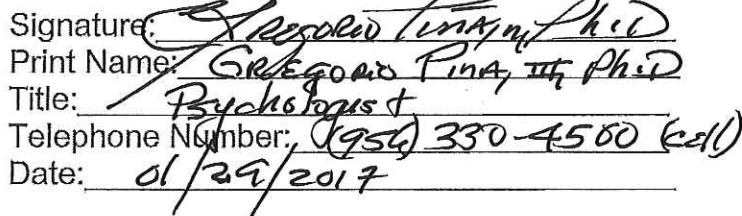 Signature: Gregorio Pina, III, Ph.D
Print Name: GREGORIO PINA, III, Ph.D
Title: Psychologist
Telephone Number: (956) 330-4500 (cell)
Date: 01/29/2017